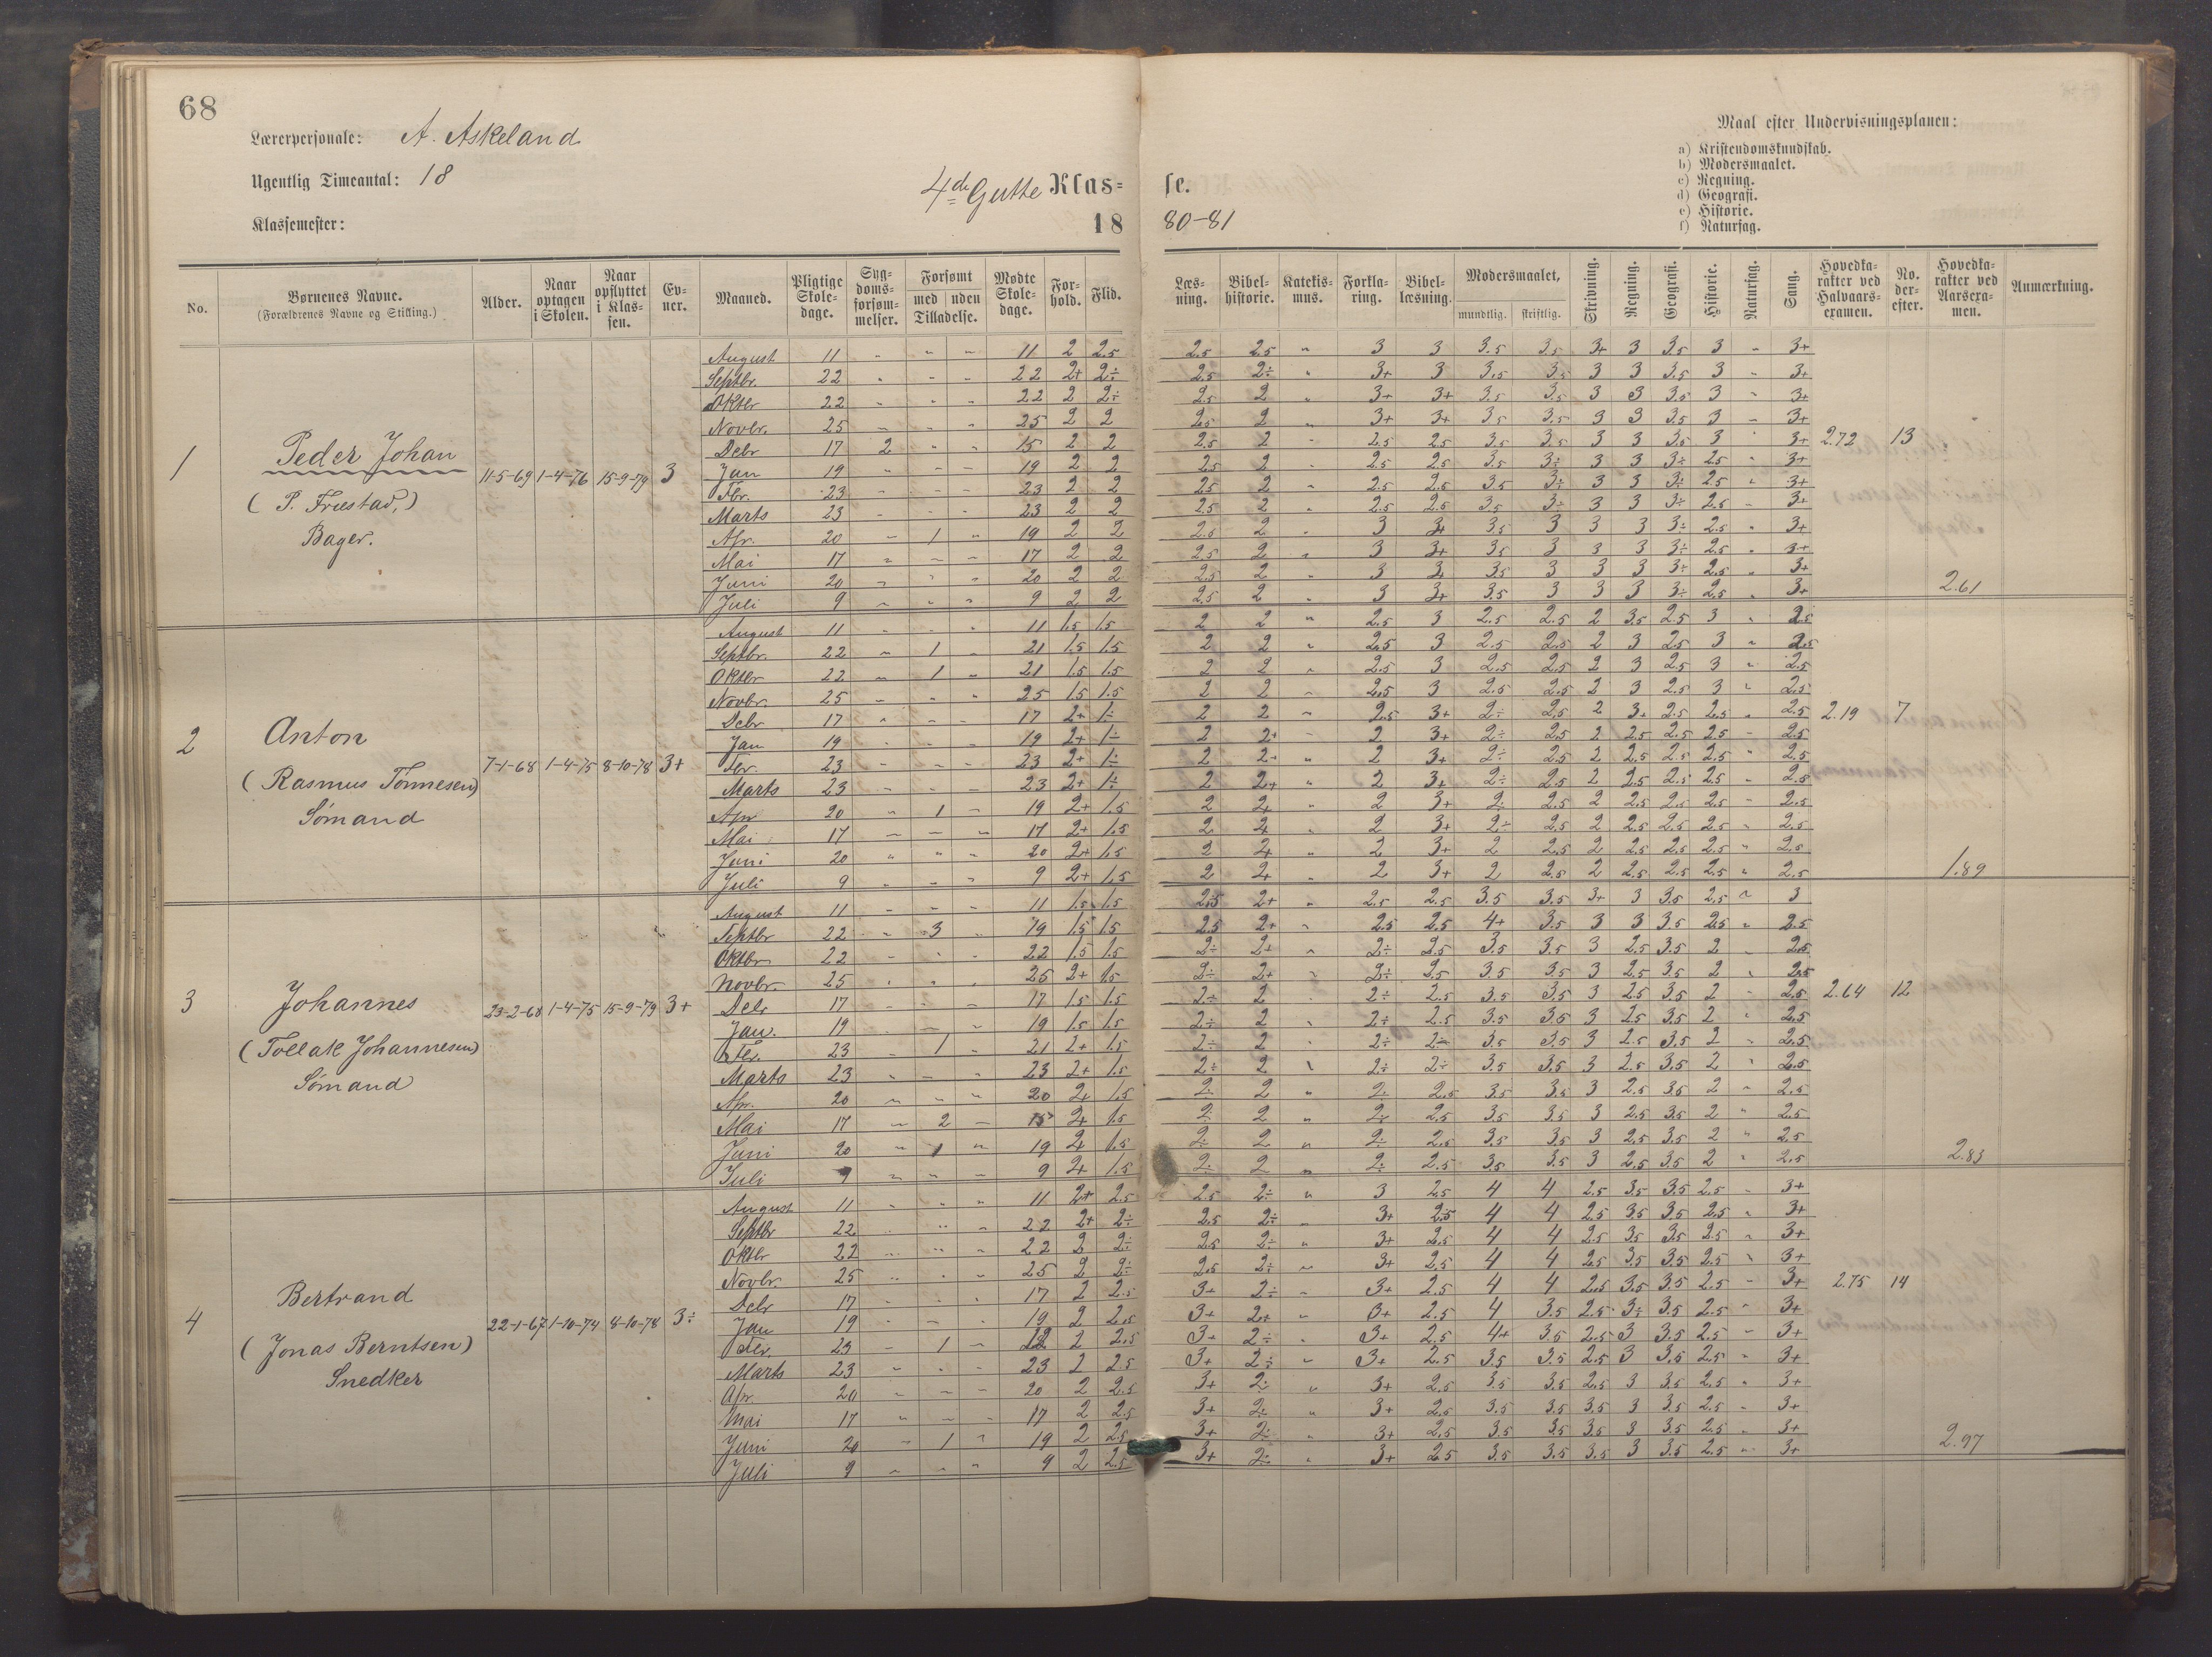 68
Lærerpersonale: A. Askeland
Ugentlig Timeantal: 18
Klassemester:
4de Gutte Klas= se.
18 80-81
Maal efter Undervisningsplanen:
a) Kristendomskundskab.
b) Modersmaalet.
c) Regning.
d) Geografi.
e) Historie.
f) Naturfag.
No. | Børnenes Navne. (Forældrenes Navne og Stilling.) | Alder. | Naar optagen i Skolen. | Naar opflyttet i Klassen. | Evner. | Maaned. | Pligtige Skoledage. | Sygdomsforsømmelser. | Forsømt med uden Tilladelse. | Mødte Skoledage. | Forhold. | Flid. | Læsning. | Bibelhistorie. | Katekismus. | Forklaring. | Bibellæsning. | Modersmaalet, mundtlig. skriftlig. | Skrivning. | Regning. | Geografi. | Historie. | Naturfag. | Sang. | Hovedkarakter ved Halvaarsexamen. | No. derefter. | Hovedkarakter ved Aarsexamen. | Anmærkning.
1 Peder Johan (P. Friestad,) Bager. 11-5-69 1-4-76 15-9-79 3 2.72 13 2.61
August 11 " " " 11 2 2.5 2.5 2.5 " 3 3 3.5 3.5 3+ 3 3.5 3 " 3+
Septbr. 22 " " " 22 2+ 2÷ 2.5 2÷ " 3+ 3 3.5 3.5 3 3 3.5 3 " 3+
Oktbr 22 " " " 22 2 2÷ 2.5 2 " 3+ 3+ 3.5 3.5 3 3 3.5 3 " 3+
Novbr. 25 " " " 25 2 2 2.5 2 " 3+ 3+ 3.5 3.5 3 3 3.5 3 " 3+
Debr 17 2 " " 15 2 2 2.5 2 " 2.5 2.5 3.5 3.5 3 3 3.5 3 " 3+
Jan 19 " " " 19 2 2 2.5 2 " 2.5 2.5 3.5 3÷ 3 3 3÷ 2.5 " 3+
Fbr. 23 " " " 23 2 2 2.5 2 " 2.5 2.5 3.5 3÷ 3 3 3÷ 2.5 " 3+
Marts 23 " " " 23 2 2 2.5 2 " 2.5 2.5 3.5 3÷ 3 3 3÷ 2.5 " 3+
Apr. 20 " 1 " 19 2 2 2.5 2 " 3 3+ 3.5 3 3 3 3÷ 2.5 " 3+
Mai 17 " " " 17 2 2 2.5 2 " 3 3+ 3.5 3 3 3 3÷ 2.5 " 3+
Juni 20 " " " 20 2 2 2.5 2 " 3 3+ 3.5 3 3 3 3÷ 2.5 " 3+
Juli 9 " " " 9 2 2 2.5 2 " 3 3+ 3.5 3 3 3 3÷ 2.5 " 3+
2 Anton (Rasmus Tönnesen) Sömand 7-1-68 1-4-75 8-10-78 3+ 2.19 7 1.89
August 11 " " " 11 1.5 1.5 2 2 " 2.5 3 2.5 2.5 2 3.5 2.5 3 " 2.5
Septbr. 22 " 1 " 21 1.5 1.5 2 2 " 2.5 3 2.5 2.5 2 3 2.5 3 " 2.5
Oktbr 22 " 1 " 21 1.5 1.5 2 2 " 2.5 3 2.5 2.5 2 3 2.5 3 " 2.5
Novbr. 25 " " " 25 1.5 1.5 2 2 " 2.5 3 2.5 2.5 2 3 2.5 3 " 2.5
Debr 17 " " " 17 2+ 1÷ 2 2 " 2.5 3+ 2÷ 2.5 2 3+ 2.5 2.5 " 2.5
Jan 19 " " " 19 2+ 1÷ 2 2+ " 2 3+ 2÷ 2.5 2 2.5 2.5 2.5 " 2.5
Fbr. 23 " " " 23 2+ 1÷ 2 2+ " 2 3+ 2÷ 2.5 2 2.5 2.5 2.5 " 2.5
Marts 23 " " " 23 2+ 1÷ 2 2+ " 2 3+ 2÷ 2.5 2 2.5 2.5 2.5 " 2.5
Apr 20 " 1 " 19 2+ 1.5 2 2+ " 2 3+ 2÷ 2.5 2 2.5 2.5 2.5 " 2.5
Mai 17 " " " 17 2+ 1.5 2 2+ " 2 3+ 2÷ 2.5 2 2.5 2.5 2.5 " 2.5
Juni 20 " " " 20 2+ 1.5 2 2+ " 2 3+ 2 2.5 2 2.5 2.5 2.5 " 2.5
Juli 9 " " " 9 2+ 1.5 2 2+ " 2 3+ 2 2.5 2 2.5 2.5 2.5 " 2.5
3 Johannes (Tollak Johannesen) Sömand 23-2-68 1-4-75 15-9-79 3+ 2.64 12 2.83
August 11 " " " 11 1.5 1.5 2.5 2+ " 2.5 2.5 3.5 3.5 3+ 3 3.5 2.5 " 3
Septbr 22 " 3 " 19 1.5 1.5 2.5 2+ " 2.5 2.5 4+ 3.5 3 3 3.5 2.5 " 2.5
Oktbr 22 " " " 22 1.5 1.5 2÷ 2+ " 2÷ 2.5 3.5 3.5 3 2.5 3.5 2 " 2.5
Novbr. 25 " " " 25 2+ 1.5 2÷ 2+ " 2÷ 2.5 3.5 3.5 3 2.5 3.5 2 " 2.5
Debr 17 " " " 17 1.5 1.5 2÷ 2 " 2÷ 2.5 3.5 3.5 3 2.5 3.5 2 " 2.5
Jan. 19 " " " 19 1.5 1.5 2÷ 2 " 2÷ 2.5 3.5 3.5 3 2.5 3.5 2 " 2.5
Fbr. 23 " 1 " 21 2+ 1.5 2÷ 2 " 2÷ 2÷ 3.5 3.5 3 2.5 3.5 2 " 2.5
Marts 23 " " " 23 2+ 1.5 2÷ 2 " 2÷ 2÷ 3.5 3.5 3 2.5 3.5 2 " 2.5
Apr. 20 " " " 20 2+ 1.5 2÷ 2 " 2÷ 2.5 3.5 3.5 3 2.5 3.5 2 " 2.5
Mai 17 " 2 " 15 2+ 1.5 2÷ 2 " 2÷ 2.5 3.5 3.5 3 2.5 3.5 2 " 2.5
Juni 20 " 1 " 19 2+ 1.5 2÷ 2 " 2÷ 2.5 3.5 3.5 3 2.5 3.5 2 " 2.5
Juli 9 " " " 9 2+ 1.5 2÷ 2 " 2÷ 2.5 3.5 3.5 3 2.5 3.5 2 " 2.5
4 Bertrand (Jonas Berntsen) Snedker 22-1-67 1-10-74 8-10-78 3÷ 2.75 14 2.97
August 11 " " " 11 2+ 2.5 2.5 2÷ " 3 2.5 4 4 2.5 3.5 3.5 2.5 " 3+
Septbr 22 " " " 22 2+ 2÷ 2.5 2÷ " 3+ 2.5 4 4 2.5 3.5 3.5 2.5 " 3+
Oktbr 22 " " " 22 2 2÷ 2.5 2÷ " 3+ 2.5 4 4 2.5 3.5 3.5 2.5 " 3+
Novbr. 25 " " " 25 2 2÷ 2.5 2÷ " 3+ 2.5 4 4 2.5 3.5 3.5 2.5 " 3+
Debr 17 " " " 17 2 2.5 3+ 2÷ " 3+ 2.5 4 4 2.5 3.5 3.5 2.5 " 3+
Jan 19 " " " 19 2 2.5 3+ 2+ " 3+ 2.5 4 3.5 2.5 3÷ 3.5 2.5 " 3+
Fbr. 23 " 1 " 2 2.5 3+ 2÷ " 3+ 2.5 4+ 3.5 2.5 3 3.5 2.5 " 3+
Marts 23 " " " 23 2 2.5 3+ 2÷ " 3+ 2.5 3.5 3.5 2.5 3 3.5 2.5 " 3+
Apr. 20 " " " 20 2 2.5 3+ 2÷ " 3+ 2.5 3.5 3.5 2.5 3 3.5 2.5 " 3+
Mai 17 " " " 17 2 2.5 3+ 2÷ " 3+ 2.5 3.5 3.5 3.5 3 3.5 2.5 " 3+
Juni 20 " 1 " 19 2 2.5 3+ 2÷ " 3+ 2.5 3.5 3.5 3.5 3 3.5 2.5 " 3+
Juli 9 " " " 9 2 2.5 3+ 2÷ " 3+ 2.5 3.5 3.5 3.5 3 3.5 2.5 " 3+